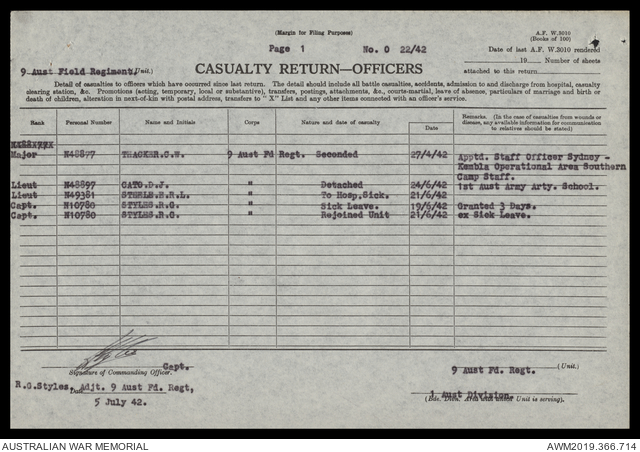 (Margin for Filing Purposes)
A.F. W.3010
(Books of 100)
Page 1 No. O 22/42
Date of last A.F. W.3010 rendered
19 Number of sheets
9 Aust Field Regiment (Unit.)
CASUALTY RETURN—OFFICERS
attached to this return
Detail of casualties to officers which have occurred since last return. The detail should include all battle casualties, accidents, admission to and discharge from hospital, casualty
clearing station, &c. Promotions (acting, temporary, local or substantive), transfers, postings, attachments, &c., courts-martial, leave of absence, particulars of marriage and birth or
death of children, alteration in next-of-kin with postal address, transfers to "X" List and any other items connected with an officer's service.
Rank Personal Number Name and Initials Corps Nature and date of casualty Date Remarks. (In the case of casualties from wounds or
disease, any available information for communication
to relatives should be stated)
Major N48877 THACKER.C.W. 9 Aust Fd Regt. Seconded 27/4/42 Apptd. Staff Officer Sydney -
Kembla Operational Area Southern
Camp Staff.
Lieut N48897 CATO.D.J. " Detached 24/6/42 1st Aust Army Arty. School.
Lieut N49381 STERLE.R.L. " To Hosp. Sick. 21/6/42
Capt. N10780 STYLES.R.G. " Sick Leave. 19/6/42 Granted 3 Days.
Capt. N10780 STYLES.R.G. " Rejoined Unit 21/6/42 ex Sick Leave.
Capt.
Signature of Commanding Officer.
9 Aust Fd. Regt. (Unit.)
R.G.Styles, Adjt. 9 Aust Fd. Regt,
Date
5 July 42.
1 Aust Division.
(Bde. Divn. Area with which Unit is serving).
AUSTRALIAN WAR MEMORIAL
AWM2019.366.714